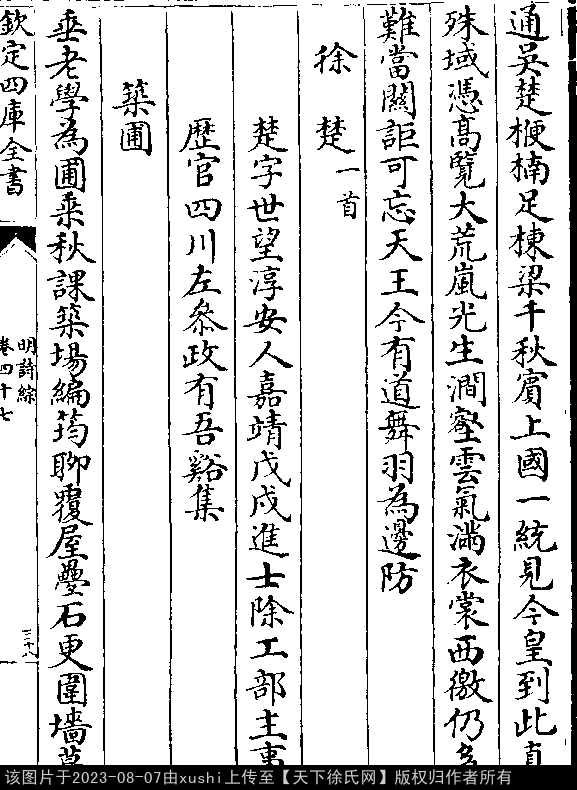 通吳楚楩楠足棟梁千秋賔上國一統見今皇到此真
殊域憑髙覽大荒嵐光生澗壑雲氣滿衣裳西徼仍多
難當關詎可忘天王今有道舞羽為邊防
徐楚一首
楚字世望淳安人嘉靖戊戌進士除工部主事
歴官四川左叅政有吾谿集
築圃
垂老學為圃乗秋課築場編筠聊覆屋疊石更圍墻
欽定四庫全書
明詩綜
卷四十七
三十八
该图片于2023-08-07由xushi上传至【天下徐氏网】版权归作者所有